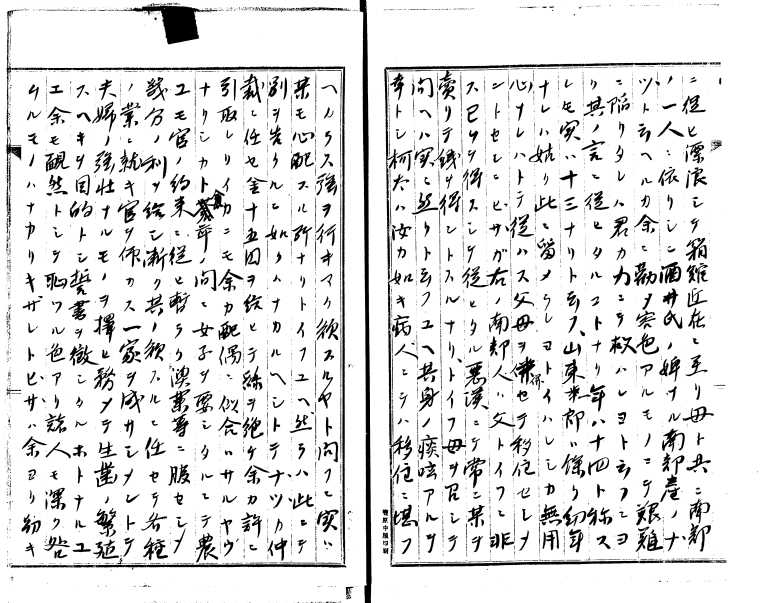 ニ従ヒ漂浪シテ箱館近在ニ至リ母ト共ニ南部
ノ一人ニ依リシニ酒井氏ノ婢ナル南部産ノナ
ツト云ヘルカ余ニ勤ヲ害色アルモノニテ艱難
ニ陥リタレハ君カ力ニテ救ハレヨト云フニヨ
リ其ノ言ニ従ヒタルコトナリ年ハ十四ト称ス
レモ実ハ十三ナリト云フ山東米部ニ係リ幼年
ナレハ姑ク此ニ留メラレヨトイハレシカ無用
心ナレハトテ従ハス父母ヲ併セテ移住セシメ
ントセシニヒサガ右ノ南部人ハ父トイフニ非
ス已ムヲ得スシテ従ヒタル悪漢ニテ常ニ某ヲ
売リテ銭ヲ得ントスルナリトイフ母ヲ召シテ
問ヘハ実ニ然リト云フユヘ其身ノ痰咳アルヲ
幸トシ柯太ハ汝カ如キ病人ニテハ移住ニ堪フ
ヘカラス強ヲ行キマク欲スルヤト問フニ実ハ
某モ心配スル所ナリトイフユヘ然ラハ此ニテ
別ヲ告クルニ如クハナカルヘシトテナツカ仲
裁ニ任セ金十五円ヲ給ヒテ縁ヲ絶ケ余カ許ニ
引取レリイカニモ余カ配偶ニ似合ハサルヤウ
ナリシカト募卒ノ間ニ女子ヲ要シタルニテ農
工モ官ノ約束ニ従ヒ暫ラク漁業等ニ服セシメ
幾分ノ利ヲ給シ漸ク其ノ欲スルニ任セテ各種
ノ業ニ就キ官ヲ佈カス一家ヲ成サシメントテ
夫婦ノ強壮ナルモノヲ択ヒ務メテ生歯ノ繁殖
スヘキヲ目的トシ誓書ヲ徴シタルホトナルユ
エ余モ靦然トシテ恥ツル色アリ諸人モ深ク咎
ムルモノハナカリキサレトヒサハ余ヨリ幼キ